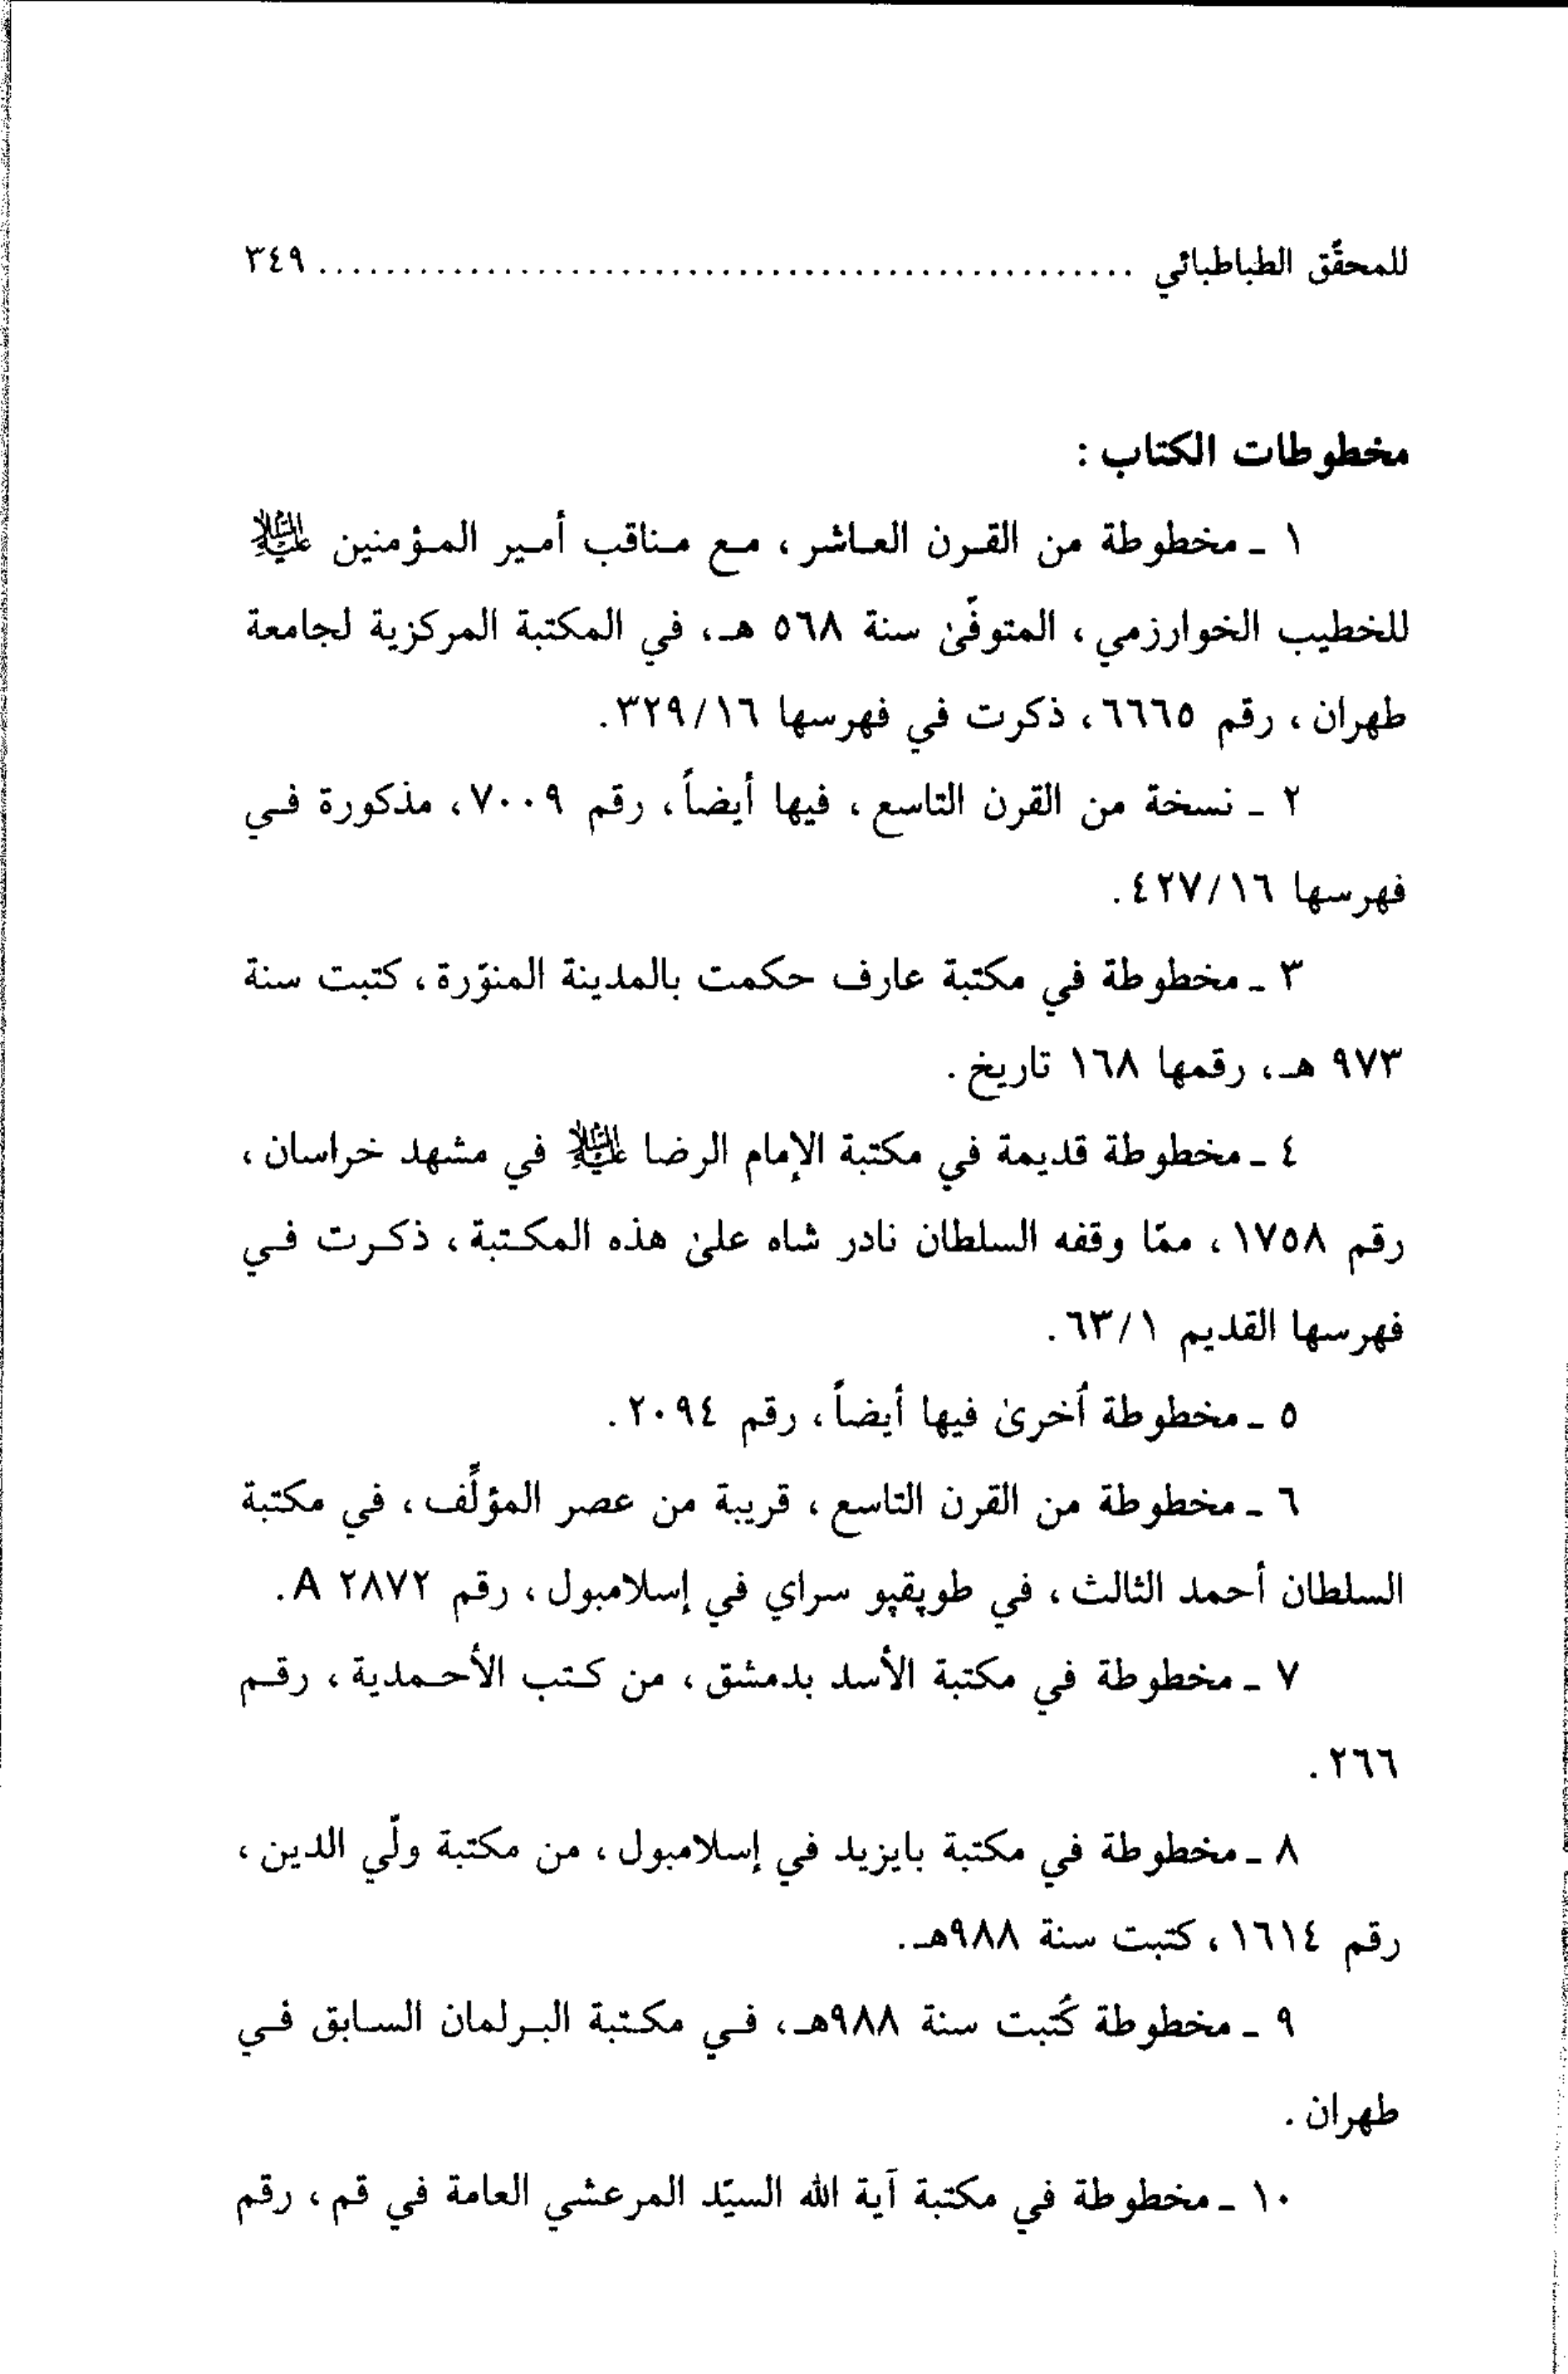 للمحقّق الطباطبائي ................................................ ٣٤٩
مخطوطات الكتاب :
١ ـ مخطوطة من القـرن العـاشر ، مـع مـناقب أمـير المـؤمنين عليه السلام
للخطيب الخوارزمي ، المتوفّىٰ سنة ٥٦٨ هـ، في المكتبة المركزية لجامعة
طهران ، رقم ٦٦٦٥ ، ذكرت في فهرسها ٣٢٩/١٦.
٢ ـ نسخة من القرن التاسع ، فيها أيضاً ، رقم ٧٠٠٩ ، مذكورة فـي
فهرسها ٤٢٧/١٦ .
٣ ـ مخطوطة في مكتبة عارف حكمت بالمدينة المنوّرة ، كتبت سنة
٩٧٣ هـ، رقمها ١٦٨ تاريخ .
٤ ـ مخطوطة قديمة في مكتبة الإمام الرضا عليه السلام في مشهد خراسان ،
رقم ١٧٥٨ ، ممّا وقفه السلطان نادر شاه علىٰ هذه المكـتبة ، ذكـرت فـي
فهرسها القديم ٦٣/١ .
٥ ـ مخطوطة أُخرىٰ فيها أيضاً ، رقم ٢٠٩٤ .
٦ ـ مخطوطة من القرن التاسع ، قريبة من عصر المؤلِّف ، في مكتبة
السلطان أحمد الثالث ، في طوپقپو سراي في إسلامبول ، رقم A ٢٨٧٢ .
٧ ـ مخطوطة في مكتبة الأسد بدمشق ، من كـتب الأحـمدية ، رقـم
٢٦٦ .
٨ ـ مخطوطة في مكتبة بايزيد في إسلامبول ، من مكتبة ولّي الدين ،
رقم ١٦١٤ ، كتبت سنة ٩٨٨هـ.
٩ ـ مخطوطة كُتبت سنة ٩٨٨هـ، فـي مكـتبة البـرلمان السـابق فـي
طهران .
١٠ ـ مخطوطة في مكتبة آية الله السيّد المرعشي العامة في قم ، رقم